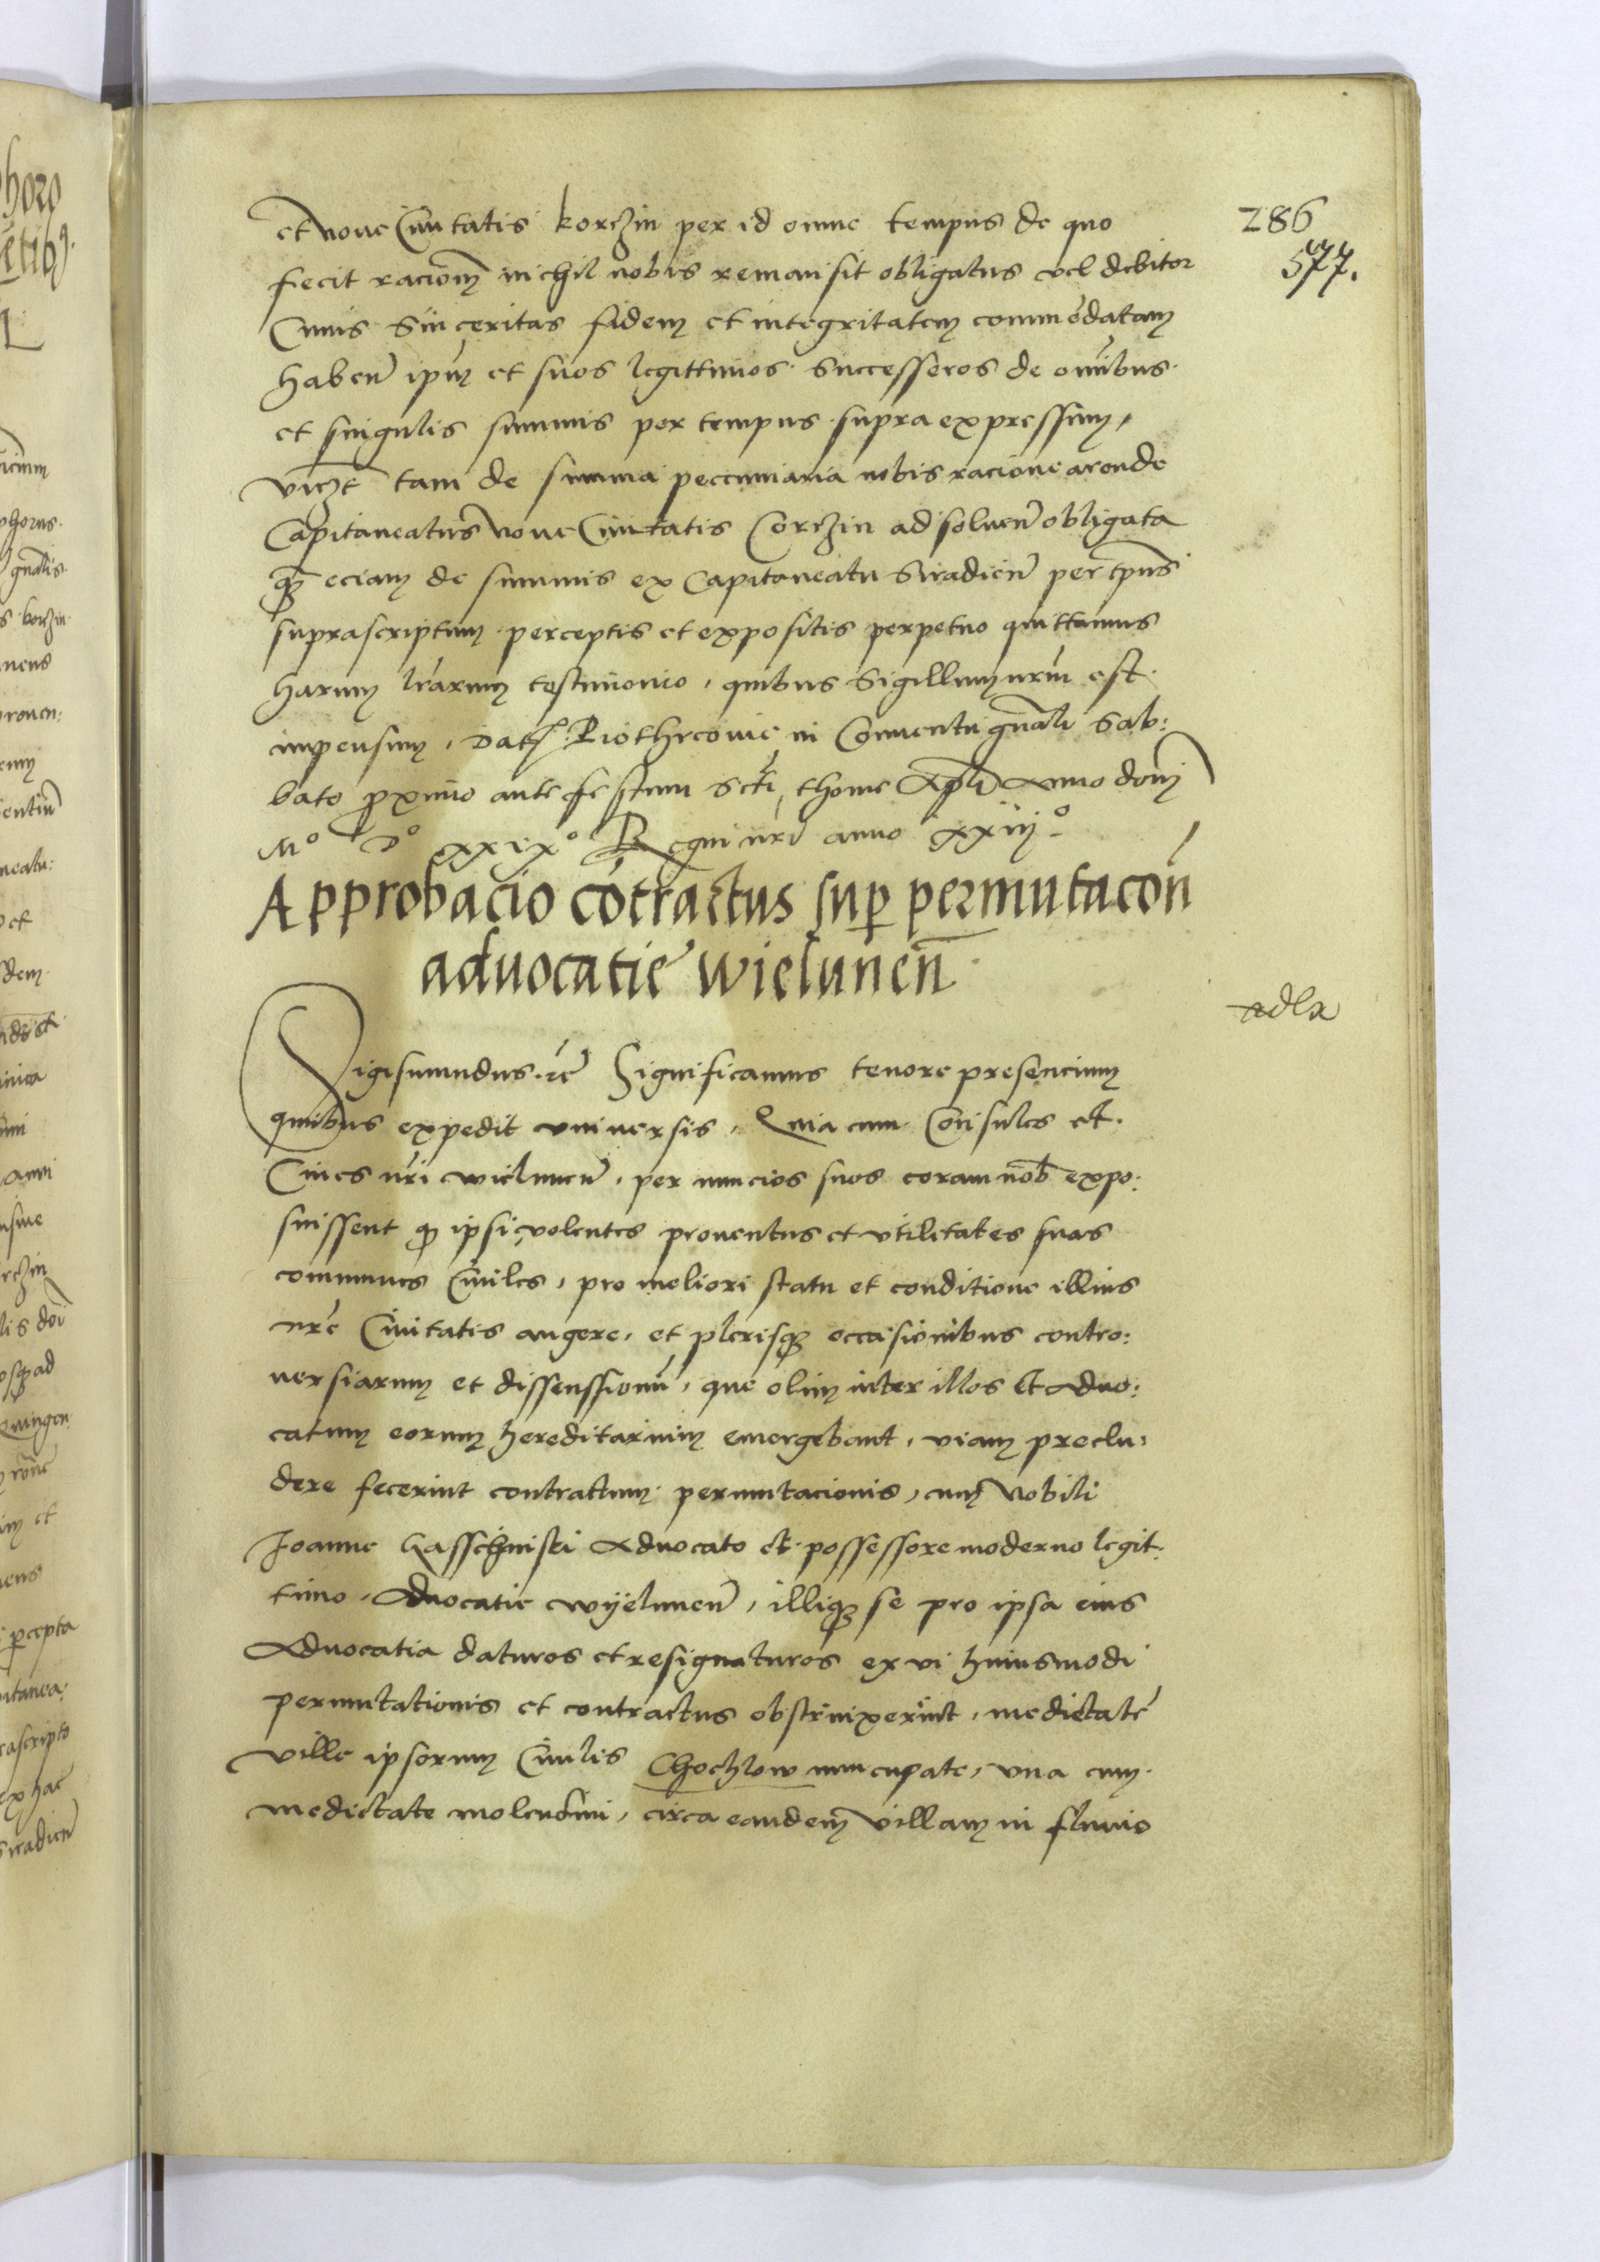 286
577.
et noue Ciuitatis korczin per id omne tempus de quo
fecit racionem nichil nobis remansit obligatus vel debitor
Cuius Sinceritas fidem et integritatem commēdatam
haben̄ ip̄m et suos legittimos Successeros de om̄ibus
et singulis summis per tempus supra expressum,
vičzt tam de summa peccuniaria nobis racione aronde
Capitaneatus noue Ciuitatis Corczin ad soluen̄ obligata
q̄ȝ eciam de summis ex Capitaneatu Siradien̄ per tp̄us
suprascriptum perceptis et expositis perpetuo quittamus
harum lr̄arum testimonio, quibus Sigillum nr̄m est
impensum, Dat̄ Piothrcouie in Conuentu gn̄ali Sab:
bato proximo ante festum Scti Thome Apl̄i Anno dom̄
Mᵒ Dᵒ xxixᵒ Regni nr̄i anno xxiijᵒ
Approbacio cōtractus sup permutacon̄
aduocatie wielunen̄
adlx
Sigismundus ⁊c̄ Significamus tenore presencium
quibus expedit vniuersis, Quia cum Consules et
Ciues nr̄i wielunen̄, per nuncios suos coram nob̄ expo:
suissent q̄ ipsi volentes prouentus et vtilitates suas
communes Ciuiles, pro meliori statu et conditione illius
nr̄e Ciuitatis augere, et plerisqȝ occasionibus contro:
uersiarum et dissenssionū, que olim inter illos et Aduo:
catum eorum hereditarium emergebant, viam preclu:
dere fecerint contractum permutacionis, cum Nobili
Joanne Aduocato et possessore moderno legit:
timo, Aduocatie wyelunen̄, illiqȝ se pro ipsa eius
Aduocatia daturos et resignaturos ex vi huiusmodi
permutationis et contractus obstrinxerint, medietatē
ville ipsorum Ciuilis Choczlow nuncupate, vna cum
medietate molendini, circa eandem villam in fluuio